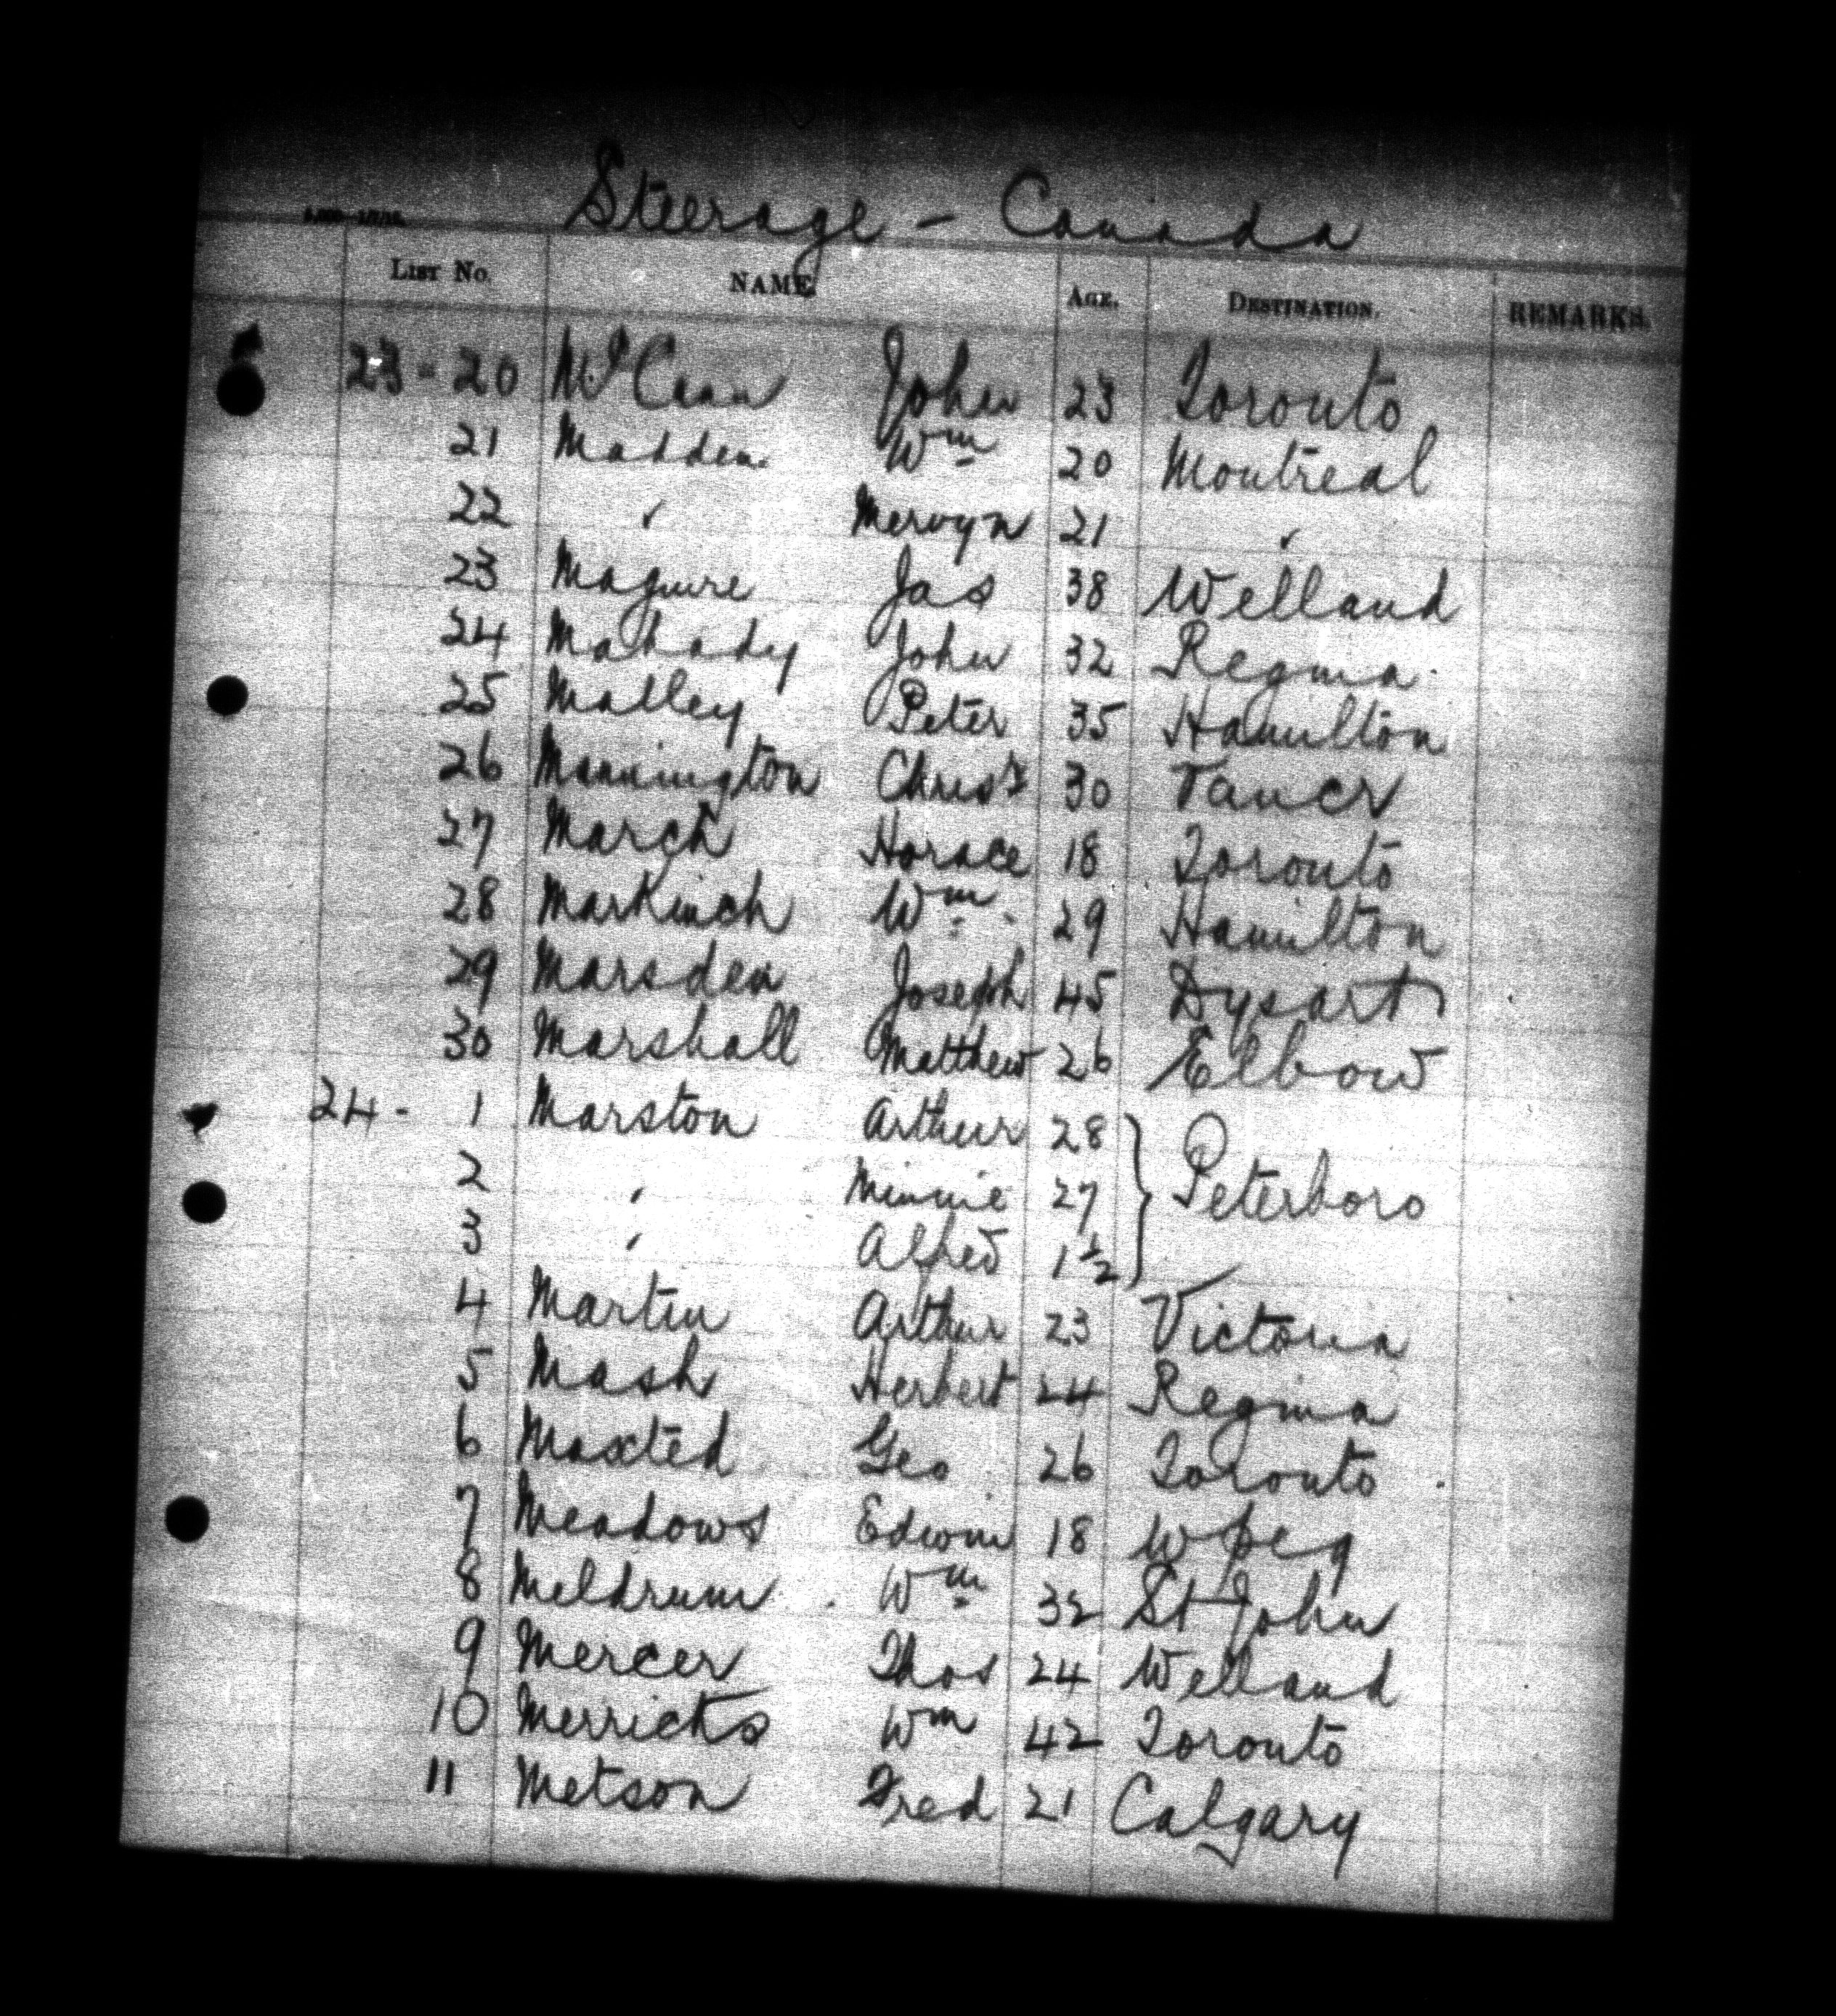 Steerage - Canada
List No. NAME Age. Destination. REMARKS.
23 - 20 McCann John 23 Toronto
21 Madden Wm 20 Montreal
22 " Mervyn 21 "
23 Maguire Jas 38 Welland
24 Mahady John 32 Regina
25 Malley Peter 35 Hamilton
26 Mannington Christr 30 Vancr
27 March Horace 18 Toronto
28 Markinch Wm 29 Hamilton
29 Marsden Joseph 45 Dysart
30 Marshall Matthew 26 Elbow
24 - 1 Marston Arthur 28 } Peterboro
2 " Minnie 27
3 " Alfred 1½
4 Martin Arthur 23 Victoria
5 Mash Herbert 24 Regina
6 Maxted Geo 26 Toronto
7 Meadows Edwin 18 Wpeg
8 Meldrum Wm 32 St John
9 Mercer Thos 24 Welland
10 Merricks Wm 42 Toronto
11 Metson Fred 21 Calgary